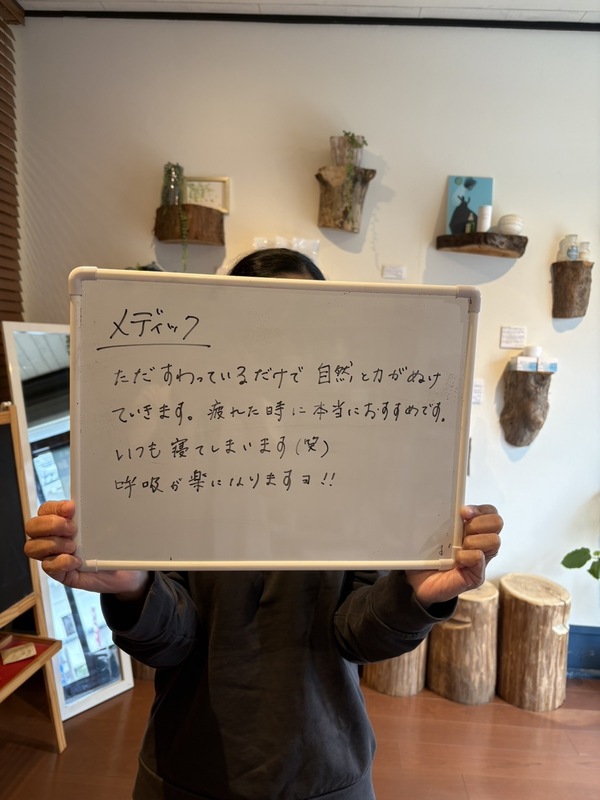 メディック
ただすわっているだけで 自然と力がぬけ
ていきます。疲れた時に本当におすすめです。
いつも寝てしまいます(笑)
呼吸が楽になりますヨ!!